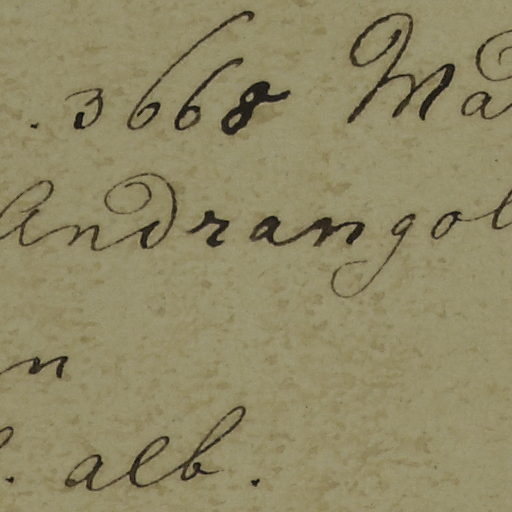 . 3668 Mad
Andrangol
n
. alb.